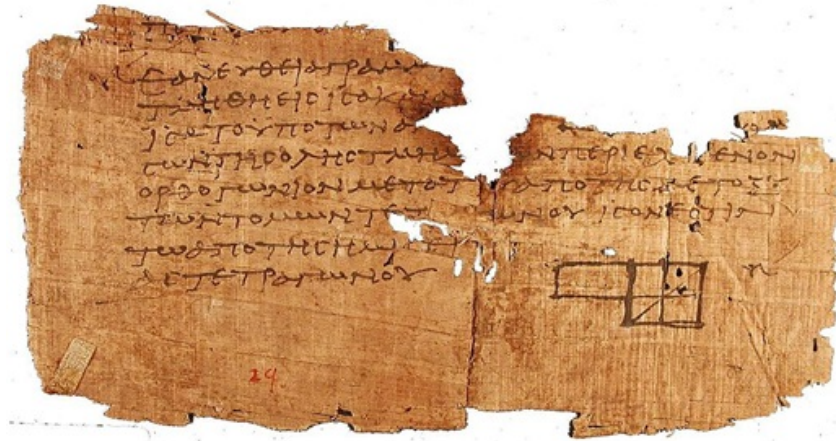 ΕΑΝ ΕΥΘΕΙΑ ΓΡΑΜΜ
ΤΜΗΘΗ ΕΙϹ ΙϹΑ ΚΑΙ
ΙϹΑ ΤΟ ΥΠΟ ΤΩΝ ΑΝ
ΙϹΩΝ ΤΗϹ ΟΛΗϹ ΤΜΗΜ ΩΝ ΠΕΡΙΕΧΟΜΕΝΟΝ
ΟΡΘΟΓΩΝΙΟΝ ΜΕΤΑ ΤΟΥ ΑΠΟ ΤΗϹ ΜΕΤΟΞΥ
ΤΩΝ ΤΟΜΩΝ ΤΕΤ ΩΝΟΥ ΙϹΟΝ ΕϹΤΙΝ
ΤΩ ΑΠΟ ΤΗϹ ΗΜΙϹΕΙ
ΑϹ ΤΕΤΡΑΓΩΝΟΥ
29.